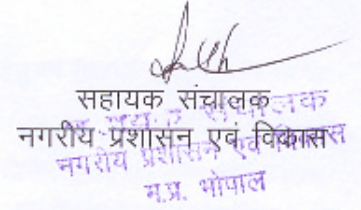 सहायक संचालक
नगरीय प्रशासन एवं विकास
संचालक
नगरीय प्रशासन एवं विकास
म.प्र. भोपाल